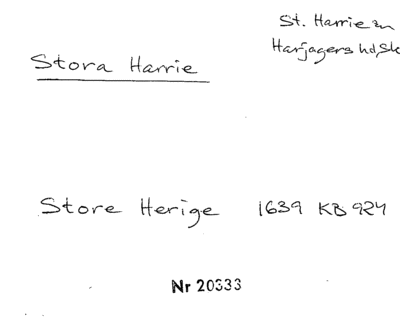 St. Harrie sn
Harjagers hd, Sk
Stora Harrie
Store Herige 1639 KB 924
Nr 20333